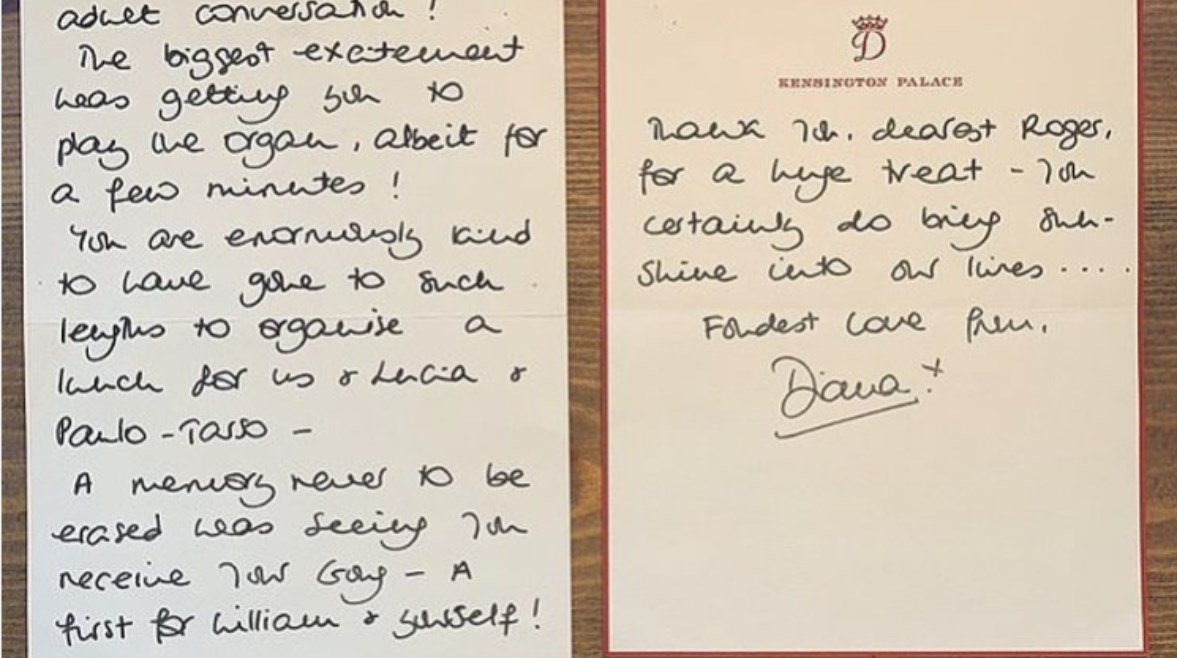 adult conversation!
The biggest excitement
was getting you to
play the organ, albeit for
a few minutes!
You are enormously kind
to have gone to such
lengths to organise a
lunch for us & Lucia &
Paulo - Tasso -
A memory never to be
erased was seeing you
receive your Gong - A
first for William & !
D
KENSINGTON PALACE
Thank you, dearest Roger,
for a huge treat - you
certainly do bring sun-
shine into our lives ....
Fondest love from,
Diana. x